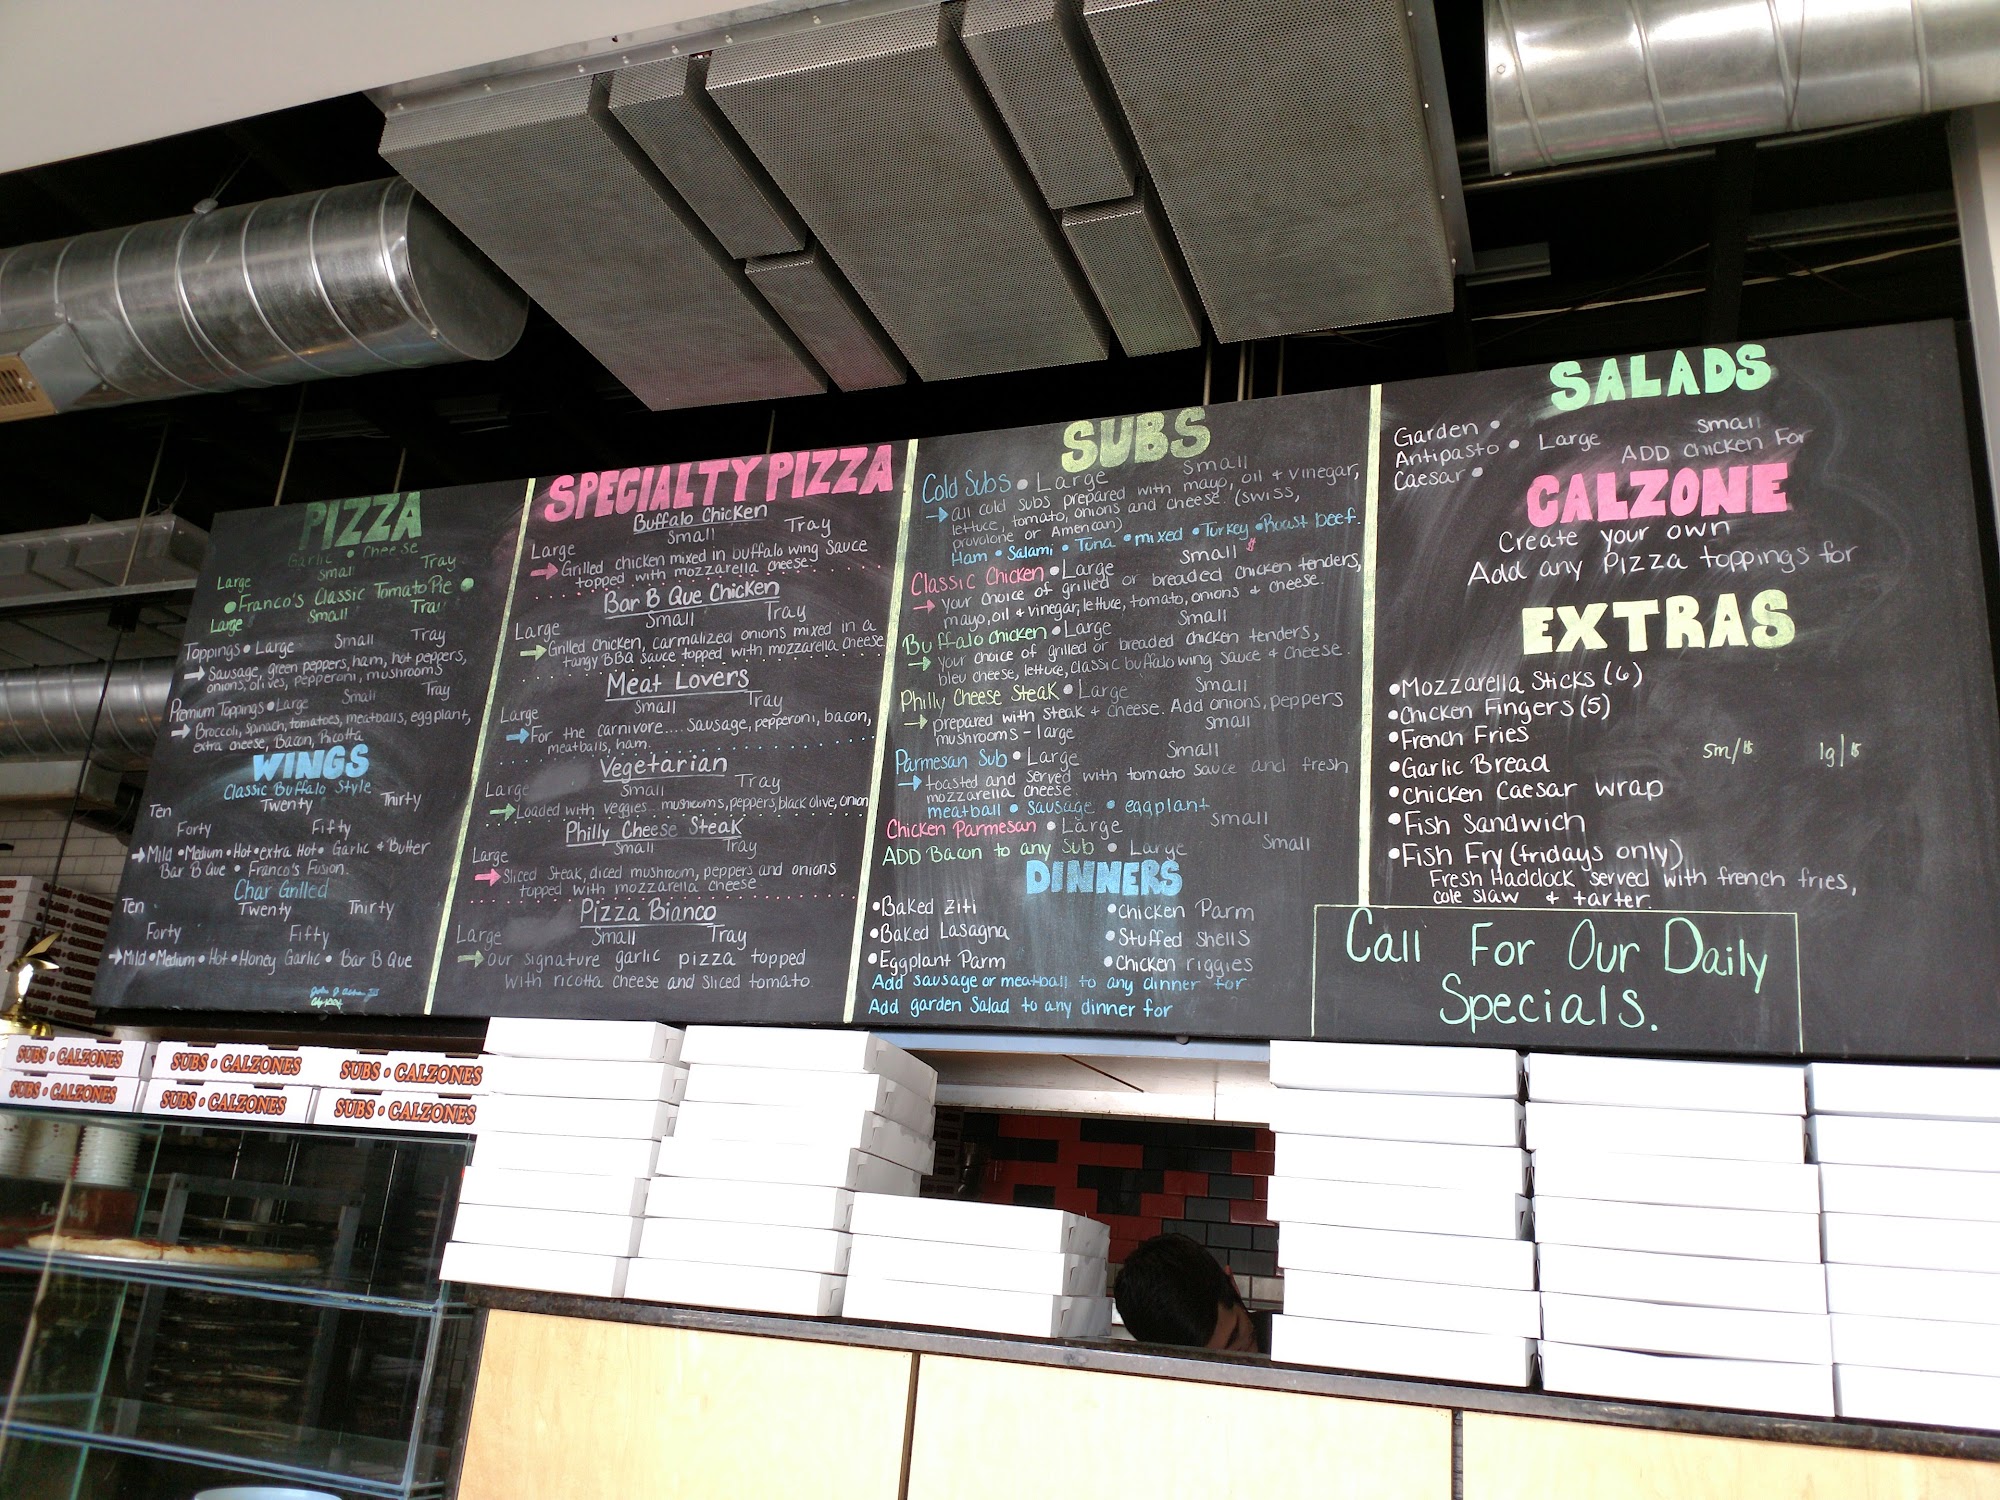 PIZZA
Garlic • Cheese
Large Small Tray
• Franco's Classic Tomato Pie •
Large Small Tray
Toppings • Large Small Tray
→ Sausage, green peppers, ham, hot peppers,
onions, olives, pepperoni, mushrooms
Premium Toppings • Large Small Tray
→ Broccoli, Spinach, tomatoes, meatballs, eggplant,
extra cheese, Bacon, Ricotta
WINGS
Classic Buffalo Style
Ten Twenty Thirty
Forty Fifty
→ Mild • Medium • Hot • extra Hot • Garlic & Butter
Bar B Que • Franco's Fusion.
Char Grilled
Ten Twenty Thirty
Forty Fifty
→ Mild • Medium • Hot • Honey Garlic • Bar B Que
SPECIALTY PIZZA
Buffalo Chicken
Large Small Tray
→ Grilled chicken mixed in buffalo wing sauce
topped with mozzarella cheese
Bar B Que Chicken
Large Small Tray
→ Grilled chicken, carmalized onions mixed in a
tangy BBQ sauce topped with mozzarella cheese
Meat Lovers
Large Small Tray
→ For the carnivore.... Sausage, pepperoni, bacon,
meatballs, ham.
Vegetarian
Large Small Tray
→ Loaded with veggies... mushrooms, peppers, black olive, onion
Philly Cheese Steak
Large Small Tray
→ Sliced steak, diced mushroom, peppers and onions
topped with mozzarella cheese
Pizza Bianco
Large Small Tray
→ our signature garlic pizza topped
with ricotta cheese and sliced tomato
SUBS
Cold Subs • Large Small
→ all cold subs prepared with mayo, oil & vinegar,
lettuce, tomato, onions and cheese. (swiss,
provolone or American)
Ham • Salami • Tuna • mixed • Turkey • Roast beef.
Classic Chicken • Large Small $
→ your choice of grilled or breaded chicken tenders,
mayo, oil & vinegar, lettuce, tomato, onions & cheese.
Buffalo chicken • Large Small
→ your choice of grilled or breaded chicken tenders,
bleu cheese, lettuce, classic buffalo wing sauce & cheese.
Philly Cheese Steak • Large Small
→ prepared with steak & cheese. Add onions, peppers
mushrooms - large Small
Parmesan Sub • Large Small
→ toasted and served with tomato sauce and fresh
mozzarella cheese.
meatball • sausage • eggplant
Chicken Parmesan • Large Small
ADD Bacon to any sub • Large Small
DINNERS
• Baked ziti • Chicken Parm
• Baked Lasagna • Stuffed shells
• Eggplant Parm • Chicken riggies
Add sausage or meatball to any dinner for
Add garden Salad to any dinner for
SALADS
Garden •
Antipasto • Large Small
Caesar • ADD chicken For
CALZONE
Create your own
Add any Pizza toppings for
EXTRAS
• Mozzarella Sticks (6)
• Chicken Fingers (5)
• French Fries
sm/$ lg/$
• Garlic Bread
• Chicken Caesar wrap
• Fish Sandwich
• Fish Fry (fridays only)
Fresh Haddock served with french fries,
cole slaw & tarter.
Call For Our Daily
Specials.
SUBS • CALZONES SUBS • CALZONES SUBS • CALZONES
SUBS • CALZONES SUBS • CALZONES SUBS • CALZONES